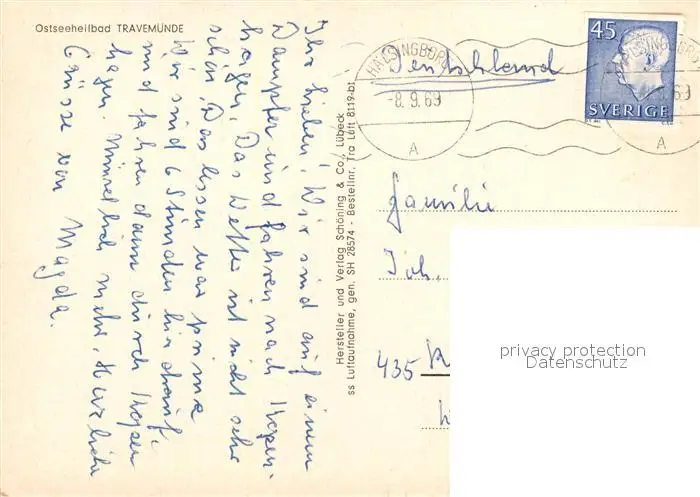 Ostseeheilbad TRAVEMÜNDE
Ihr Lieben! Wir sind auf einem
Dampfer und fahren nach Kopen-
hagen. Das Wetter ist nicht sehr
schön. Das Essen war prima
Wir sind 6 Stunden hier drauf
und fahren dann durch Kopen
hagen. Mündlich mehr. Herzliche
Grüsse von Magda.
Hersteller und Verlag Schöning & Co., Lübeck
ss Luftaufnahme, gen. SH 28574 - Bestellnr. Tra Luft 8119-b1
HÄLSINGBORG
-8.9.69
A
Deutschland
45
SVERIGE
HÄLSINGBORG
69
A
Familie
Joh.
435
privacy protection
Datenschutz